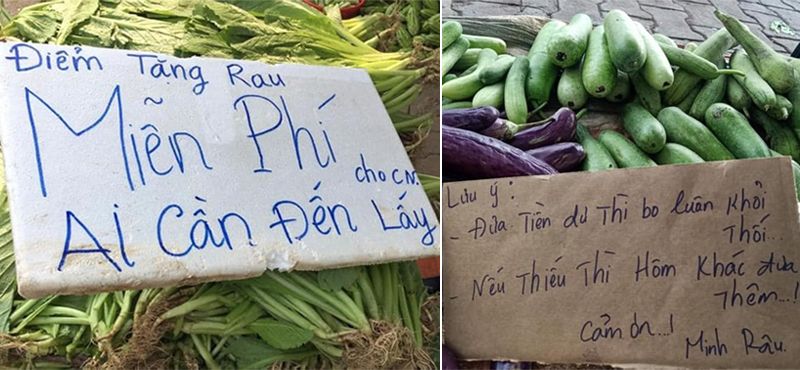 Điểm Tặng Rau
Miễn Phí
cho C.N.
Ai Cần Đến Lấy
Lưu ý :
- Đưa Tiền dư Thì bo luân Khỏi
Thối...
- Nếu Thiếu Thì Hôm Khác đưa
Thêm...!
Cảm ơn...!
Minh Râu.